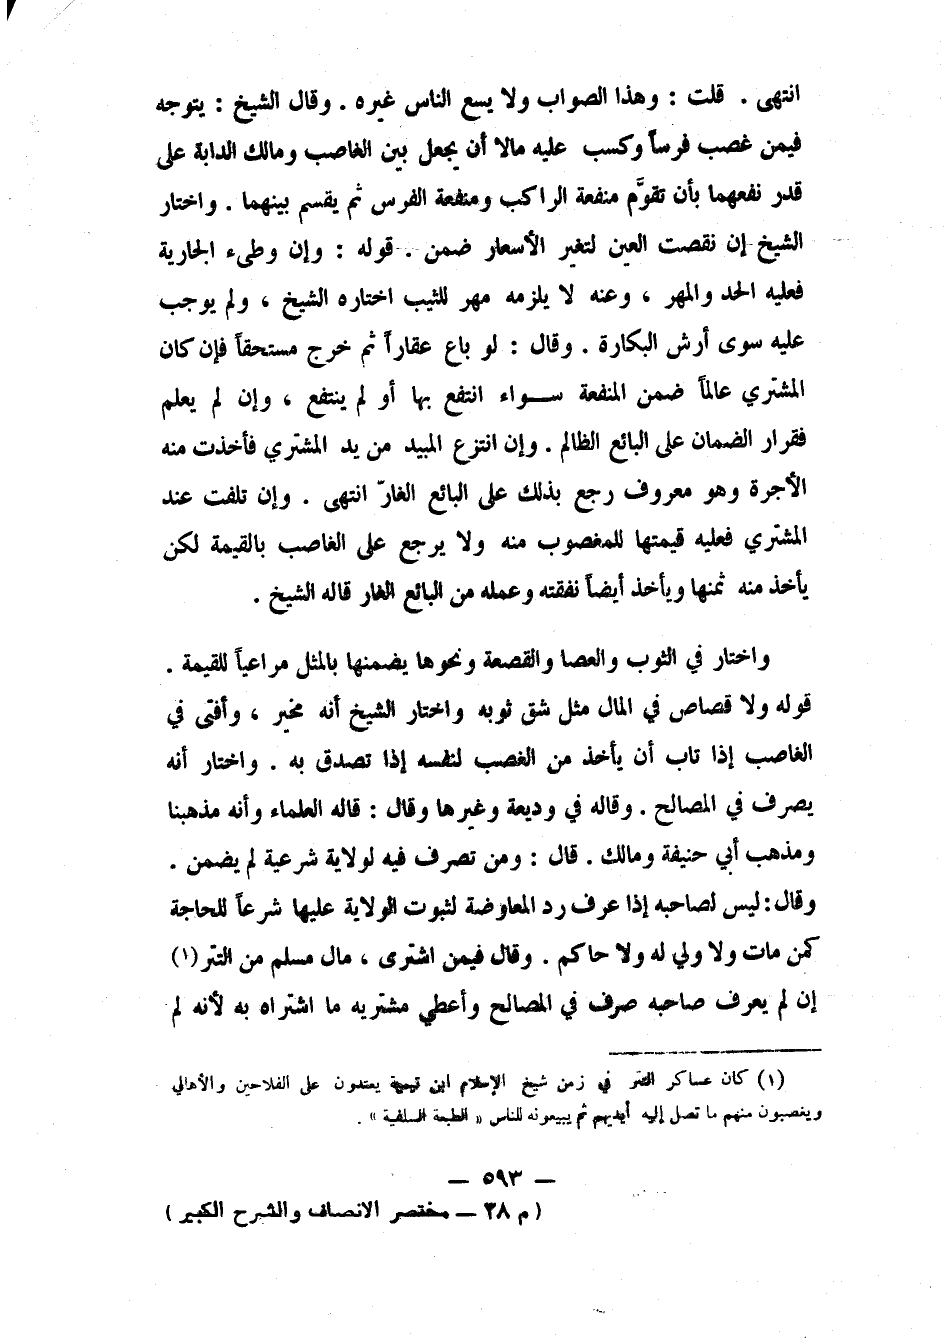 انتهى . قلت : وهذا الصواب ولا يسع الناس غيره . وقال الشيخ : يتوجه
فيمن غصب فرساً وكسب عليه مالا أن يجعل بين الغاصب ومالك الدابة على
قدر نفعهما بأن تقوَّم منفعة الراكب ومنفعة الفرس ثم يقسم بينهما . واختار
الشيخ إن نقصت العين لتغير الأسعار ضمن . قوله : وإن وطىء الجارية
فعليه الحد والمهر ، وعنه لا يلزمه مهر للثيب اختاره الشيخ ، ولم يوجب
عليه سوى أرش البكارة . وقال : لو باع عقاراً ثم خرج مستحقاً فإن كان
المشتري عالماً ضمن المنفعة ســواء انتفع بها أو لم ينتفع ، وإن لم يعلم
فقرار الضمان على البائع الظالم . وإن انتزع المبيد من يد المشتري فأخذت منه
الأجرة وهو معروف رجع بذلك على البائع الغارّ انتهى . وإن تلفت عند
المشتري فعليه قيمتها للمغصوب منه ولا يرجع على الغاصب بالقيمة لكن
يأخذ منه ثمنها ويأخذ أيضاً نفقته وعمله من البائع الغار قاله الشيخ .
واختار في الثوب والعصا والقصعة ونحوها يضمنها بالمثل مراعياً للقيمة .
قوله ولا قصاص في المال مثل شق ثوبه واختار الشيخ أنه مخير ، وأفتى في
الغاصب إذا تاب أن يأخذ من الغصب لنفسه إذا تصدق به . واختار أنه
يصرف في المصالح . وقاله في وديعة وغيرها وقال : قاله العلماء وأنه مذهبنا
ومذهب أبي حنيفة ومالك . قال : ومن تصرف فيه لولاية شرعية لم يضمن .
وقال : ليس لصاحبه إذا عرف رد المعاوضة لثبوت الولاية عليها شرعاً للحاجة
كمن مات ولا ولي له ولا حاكم . وقال فيمن اشترى ، مال مسلم من التتر (١)
إن لم يعرف صاحبه صرف في المصالح وأعطي مشتريه ما اشتراه به لأنه لم
(١) كان عساكر التتر في زمن شيخ الإسلام ابن تيمية يعتدون على الفلاحين والأهالي
ويغصبون منهم ما تصل إليه أيديهم ثم يبيعونه للناس « الطبعة السلفية » .
— ٥٩٣ —
( م ٣٨ — مختصر الانصاف والشرح الكبير )